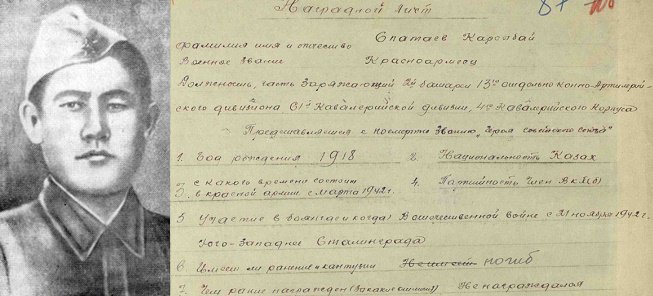 Наградной лист
87
Фамилия имя и отчество Спатаев Карсыбай
Военное звание Красноармеец
Должность, часть Заряжающий 2й батареи 13го отдельно конно-Артиллерий-
ского дивизиона 61й Кавалерийской дивизии, 4го Кавалерийского Корпуса
Представляется к посмертно Званию „Героя советского союза"
1. Год рождения 1918 2. Национальность Казах
3. с какого времени состоит
в красной армии с марта 1942г. 4. Партийность Член ВКП(б)
5. Участие в боях (где и когда) В отечественной войне с 21 ноября 1942 г.
Юго-Западнее Сталинграда
6. Имеет ли ранения и контузии погиб
7. Чем ранее награжден Не награждался